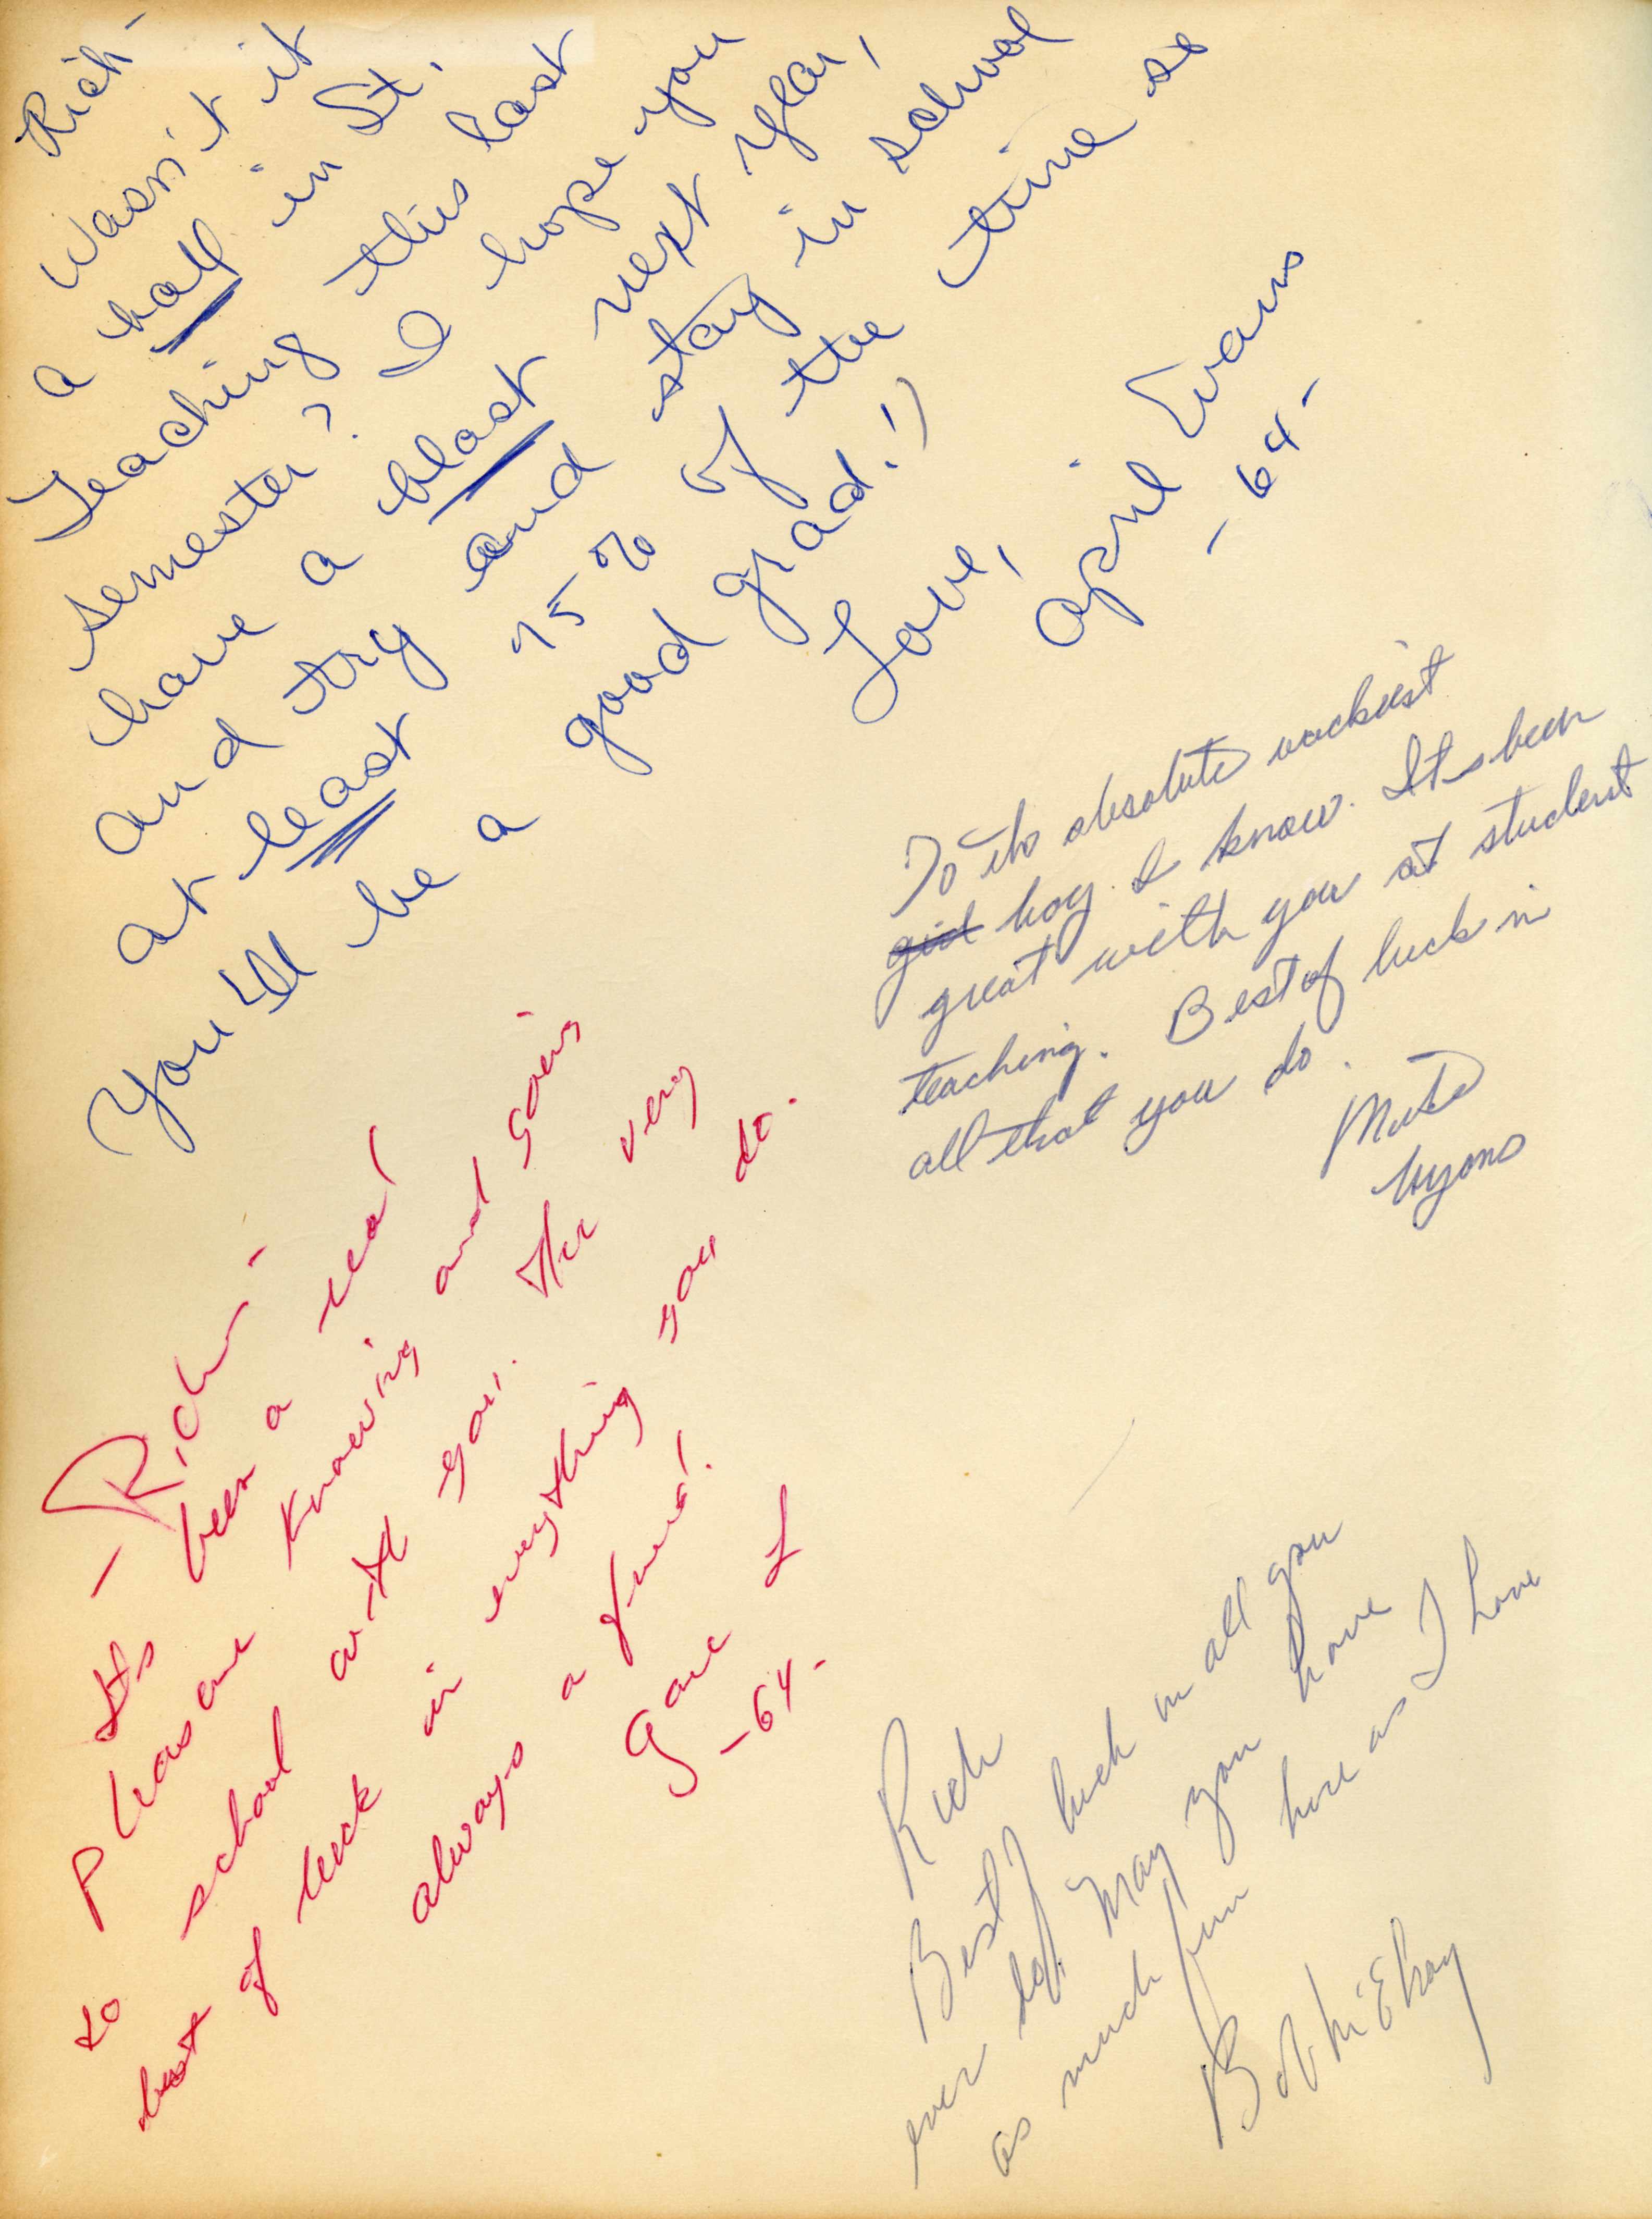 Rich -
Wasn't it
a ball in St.
Teaching this last
semester? I hope you
have a blast next year,
and try and stay in school
at least 75% of the time so
You'll be a good grad!)
Love,
April Evans
-64-
To the absolute wackiest
girl boy I know. Its been
great with you at student
teaching. Best of luck in
all that you do.
Lyons
- Rich -
Its been a real
pleasure knowing and going
to school with you. The very
best of luck in everything you do.
always a friend!
-64-
Rich
Best of luck in all you
ever do. May you have
as much fun here as I have